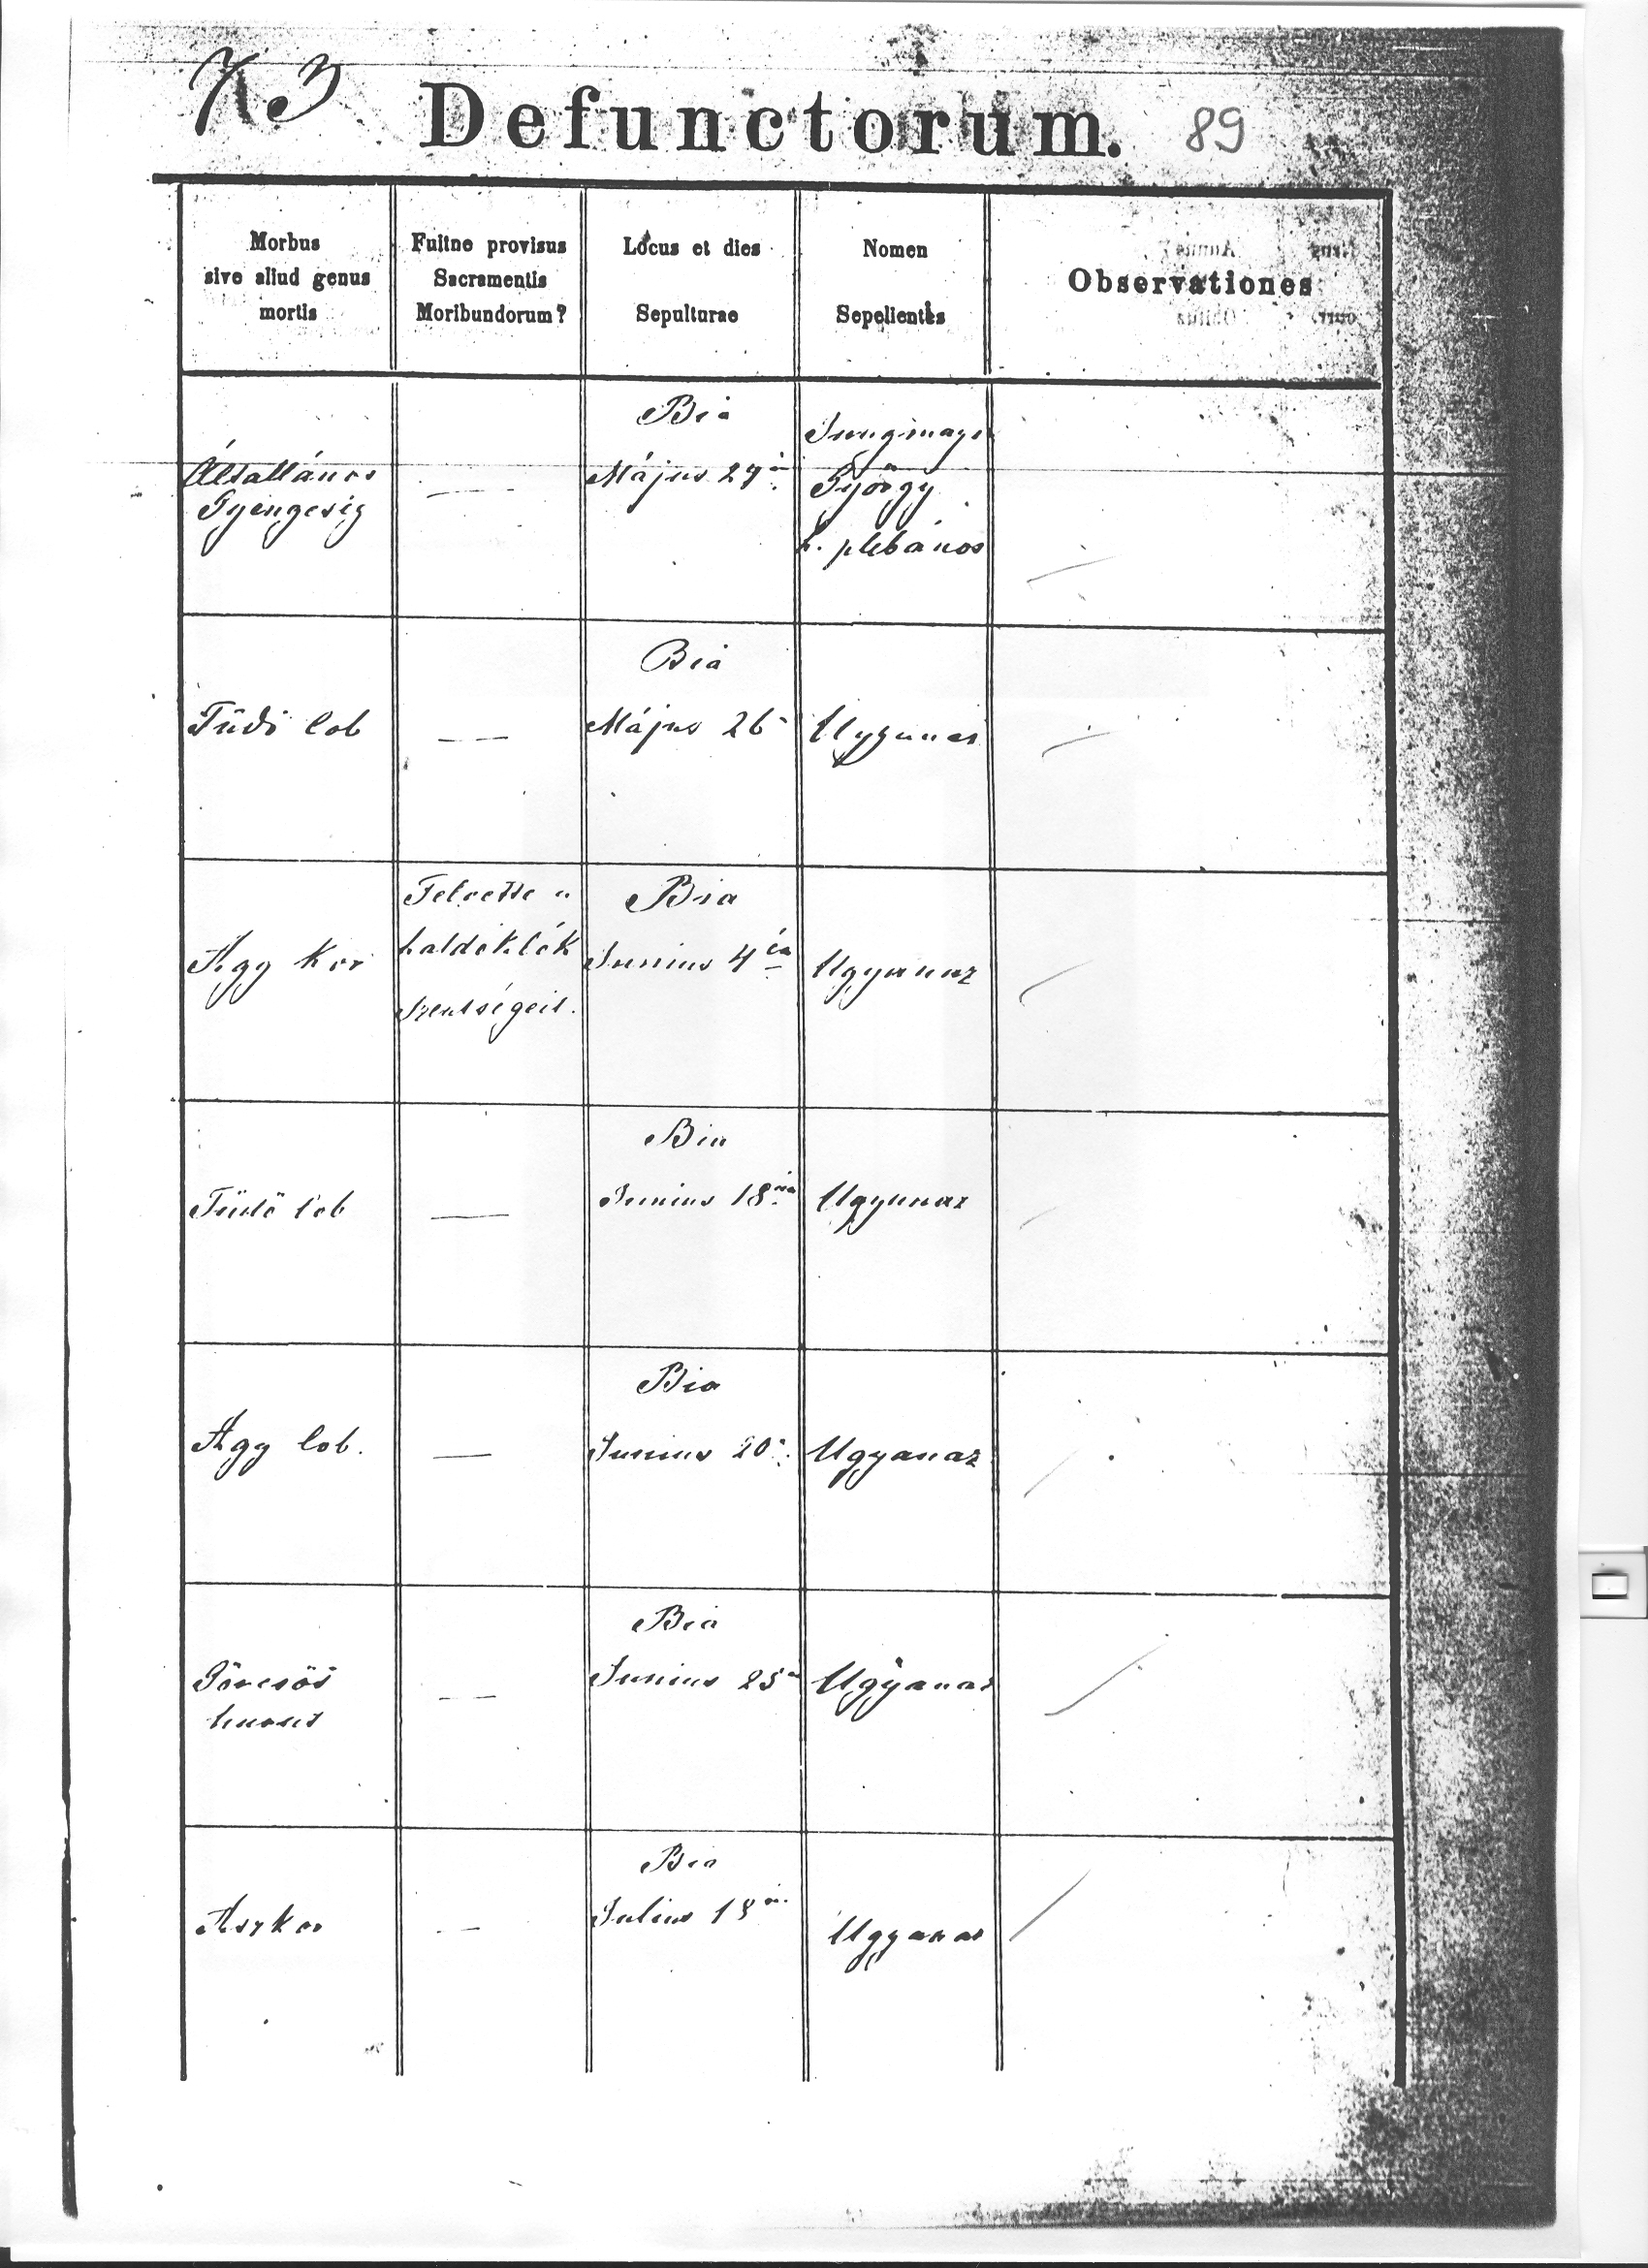 Defunctorum. 89
Morbus
sive aliud genus
mortis
Fuitne provisus
Sacramentis
Moribundorum?
Locus et dies
Sepulturae
Nomen
Sepelientis
Observationes
Általlános
Gyengeség
—
Bia
Május 24
György
h. plébános
Tüdő lob
—
Bia
Május 26
Ugyanaz
Agy kor
Felvette a
haldoklók
szentségeit.
Bia
Junius 4én
Ugyanaz
Tüdő lob
—
Bia
Junius 18án
Ugyanaz
Agy lob.
—
Bia
Junius 20
Ugyanaz
Görcsös
—
Bia
Junius 25
Ugyanaz
Aszkor
—
Bia
Julius 18
Ugyanaz